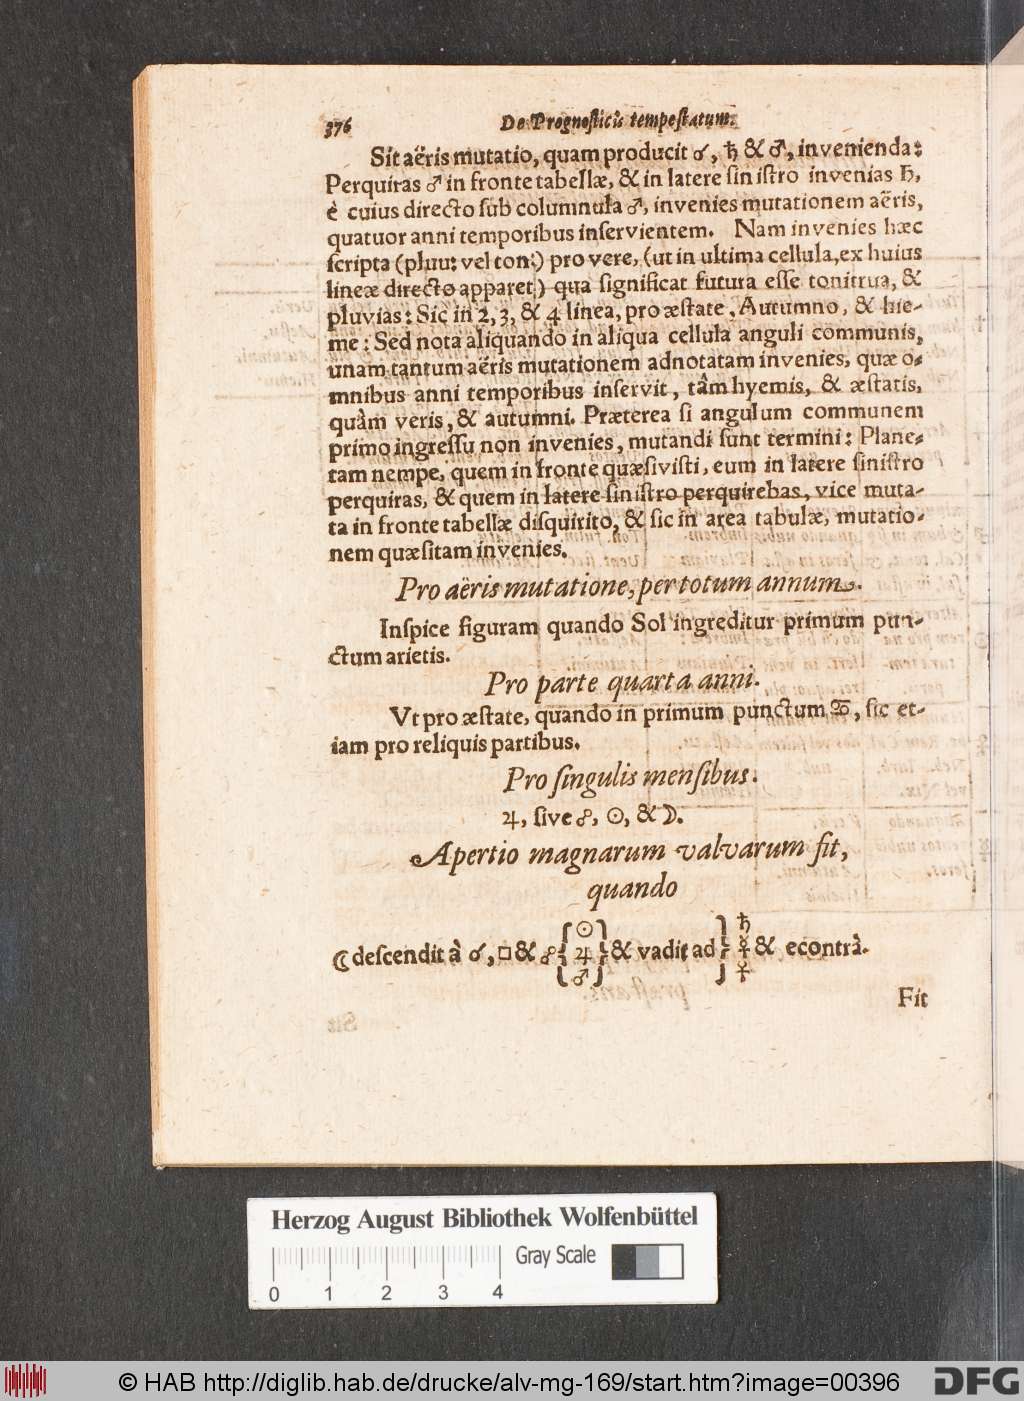 376 De Prognosticis tempestatum.
Sit aëris mutatio, quam producit ☌, ♄ & ♂, invenienda:
Perquiras ♂ in fronte tabellæ, & in latere sinistro invenias ♄,
è cuius directo sub columnula ♂, invenies mutationem aëris,
quatuor anni temporibus inservientem. Nam invenies hæc
scripta (pluu: vel ton:) pro vere, (ut in ultima cellula, ex huius
lineæ directo apparet) qua significat futura esse tonitrua, &
pluvias: Sic in 2, 3, & 4 linea, pro æstate, Autumno, & hie-
me: Sed nota aliquando in aliqua cellula anguli communis,
unam tantum aëris mutationem adnotatam invenies, quæ o-
mnibus anni temporibus inservit, tâm hyemis, & æstatis,
quàm veris, & autumni. Præterea si angulum communem
primo ingressu non invenies, mutandi sunt termini: Plane-
tam nempe, quem in fronte quæsivisti, eum in latere sinistro
perquiras, & quem in latere sinistro perquirebas, vice muta-
ta in fronte tabellæ disquirito, & sic in area tabulæ, mutatio-
nem quæsitam invenies.
Pro aëris mutatione, per totum annum.
Inspice figuram quando Sol ingreditur primum pun-
ctum arietis.
Pro parte quarta anni.
Vt pro æstate, quando in primum punctum ♋, sic et-
iam pro reliquis partibus.
Pro singulis mensibus.
♃, sive ☍, ☉, & ☽.
Apertio magnarum valvarum fit,
quando
☾ descendit à ☌, □ & ☍ { ☉ ♃ ♂ } & vadit ad } ♄ ☿ ♀ & econtrà.
Fit
Herzog August Bibliothek Wolfenbüttel
Gray Scale
0 1 2 3 4
© HAB http://diglib.hab.de/drucke/alv-mg-169/start.htm?image=00396
DFG